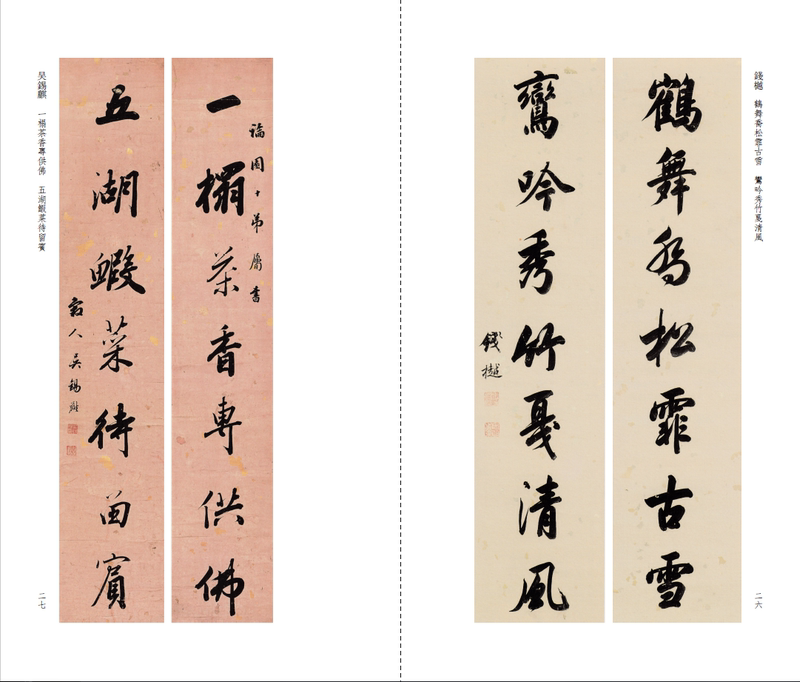 錢樾　鶴舞喬松霏古雪　鸞吟秀竹戛清風
鶴舞喬松霏古雪
鸞吟秀竹戛清風
錢樾
二六
福園十弟屬書
一榻茶香專供佛
五湖鰕菜待留賓
穀人吳錫麒
吳錫麒　一榻茶香專供佛　五湖鰕菜待留賓
二七